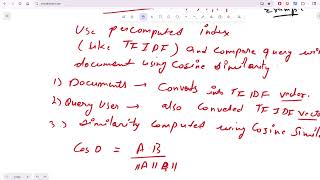 Use percomputed index
(like TFIDF) and compare query with
document using Cosine Similarity
1) Documents → Converts into TFIDF vector.
2) Query User → also converted TFIDF
3.) Similarity computed using Cosine
Cos θ = A B
||A|| B||